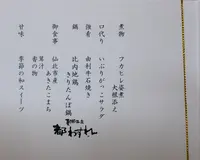 煮物　フカヒレ姿煮
大根添え
口代り　いぶりがっこサラダ
由利牛石焼き
鍋　比内地鶏
きりたんぽ鍋
御食事　仙北市産
あきたこまち
香の物
甘味　季節の和スイーツ
都わすれ